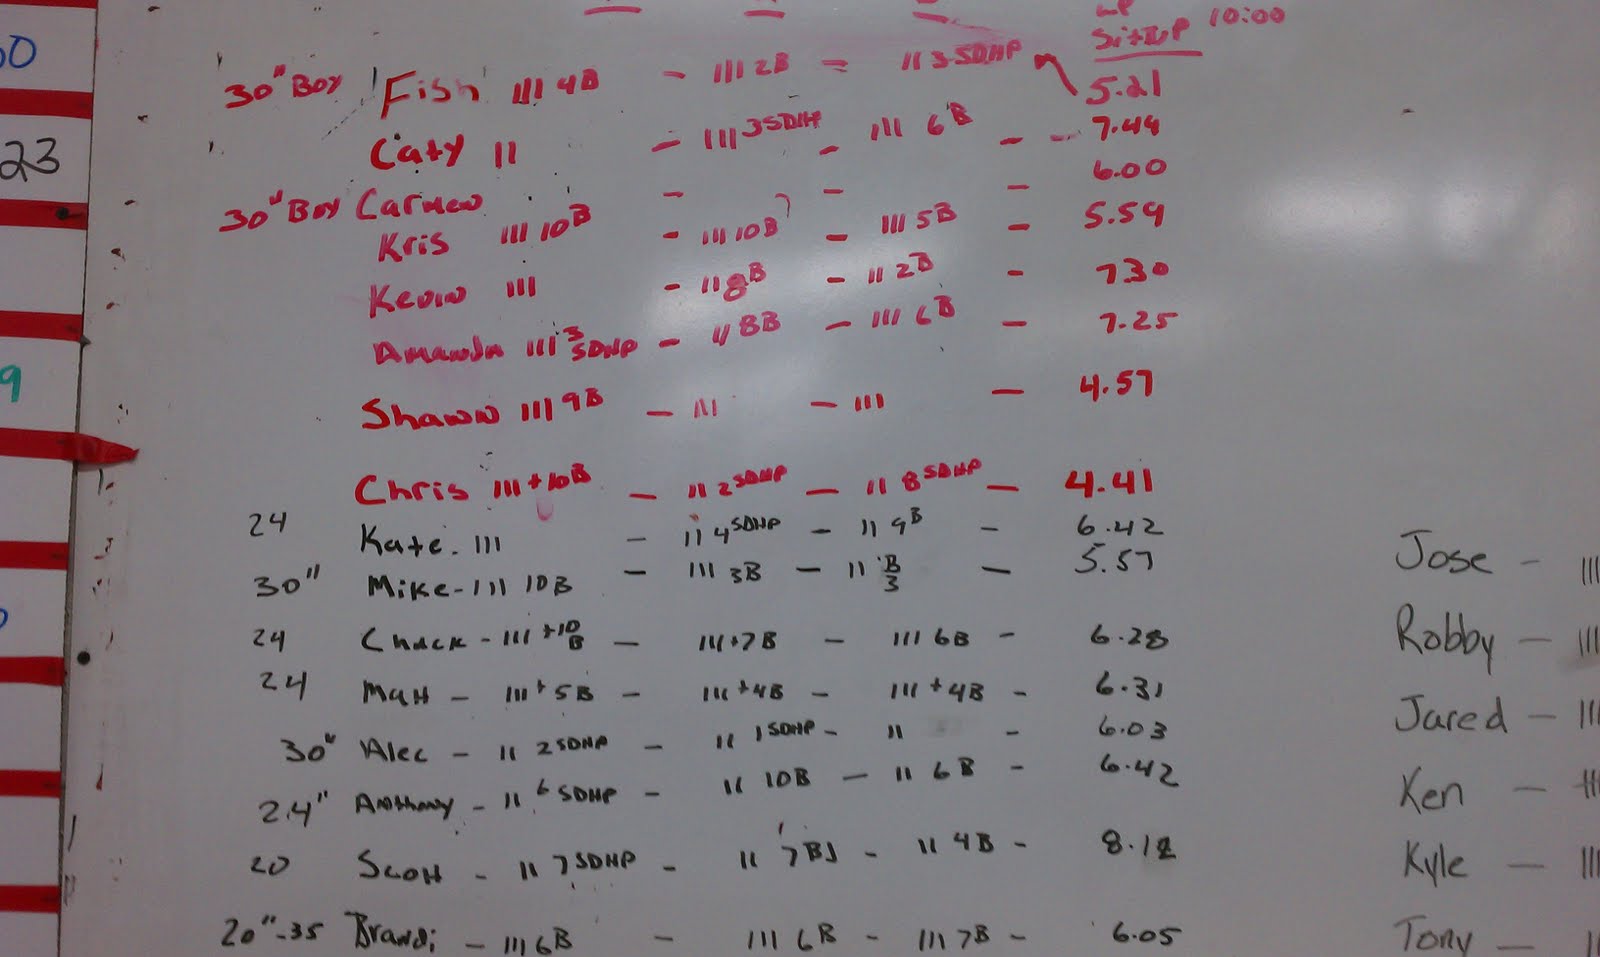 SitUP 10:00
30" Box Fish III 4B - III 2B = II 3 SDHP 5.21
Caty II - III 3SDHP - III 6B - - 7.44
30" Box Carmen - - - 6.00
Kris III 10B - III 10B - III 5B - 5.59
Kevin III - II 8B - II 2B - 730
Amanda III 3 SDHP - II 8B - III 6B - 7.25
Shawn III 9B - III - III - 4.57
Chris III + 10B - II 2 SDHP - II 8 SDHP - 4.41
24 Kate. III - II 4 SDHP - II 9B - 6.42
30" Mike - III 10B - III 3B - II B 3 - 5.57
24 Chuck - III + 10 B - III + 7B - III 6B - 6.28
24 Matt - III + 5B - III + 4B - III + 4B - 6.31
30" Alec - II 2 SDHP - II 1 SDHP - II - 6.03
24" Anthony - II 6 SDHP - II 10B - II 6B - 6.42
20 Scott - II 7 SDHP - II 7B - II 4B - 8.12
20"-35 Brandi - III 6B - III 6B - III 7B - 6.05
Jose - III
Robby - III
Jared - III
Ken -
Kyle - III
Tony - II
23
9